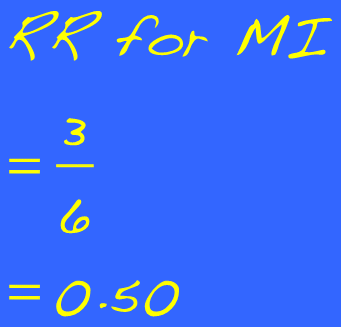 RR for MI
= 3
6
= 0.50